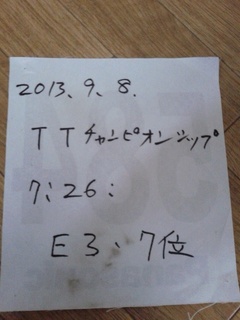 2013、9、8.
TTチャンピオンシップ
7:26:
E3、7位